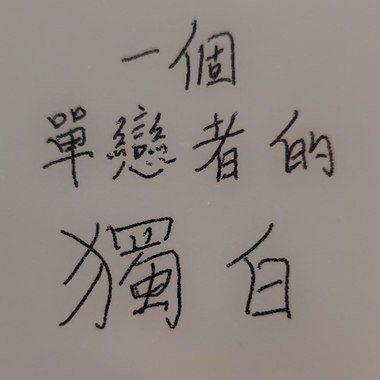 一個
單戀者的
獨白